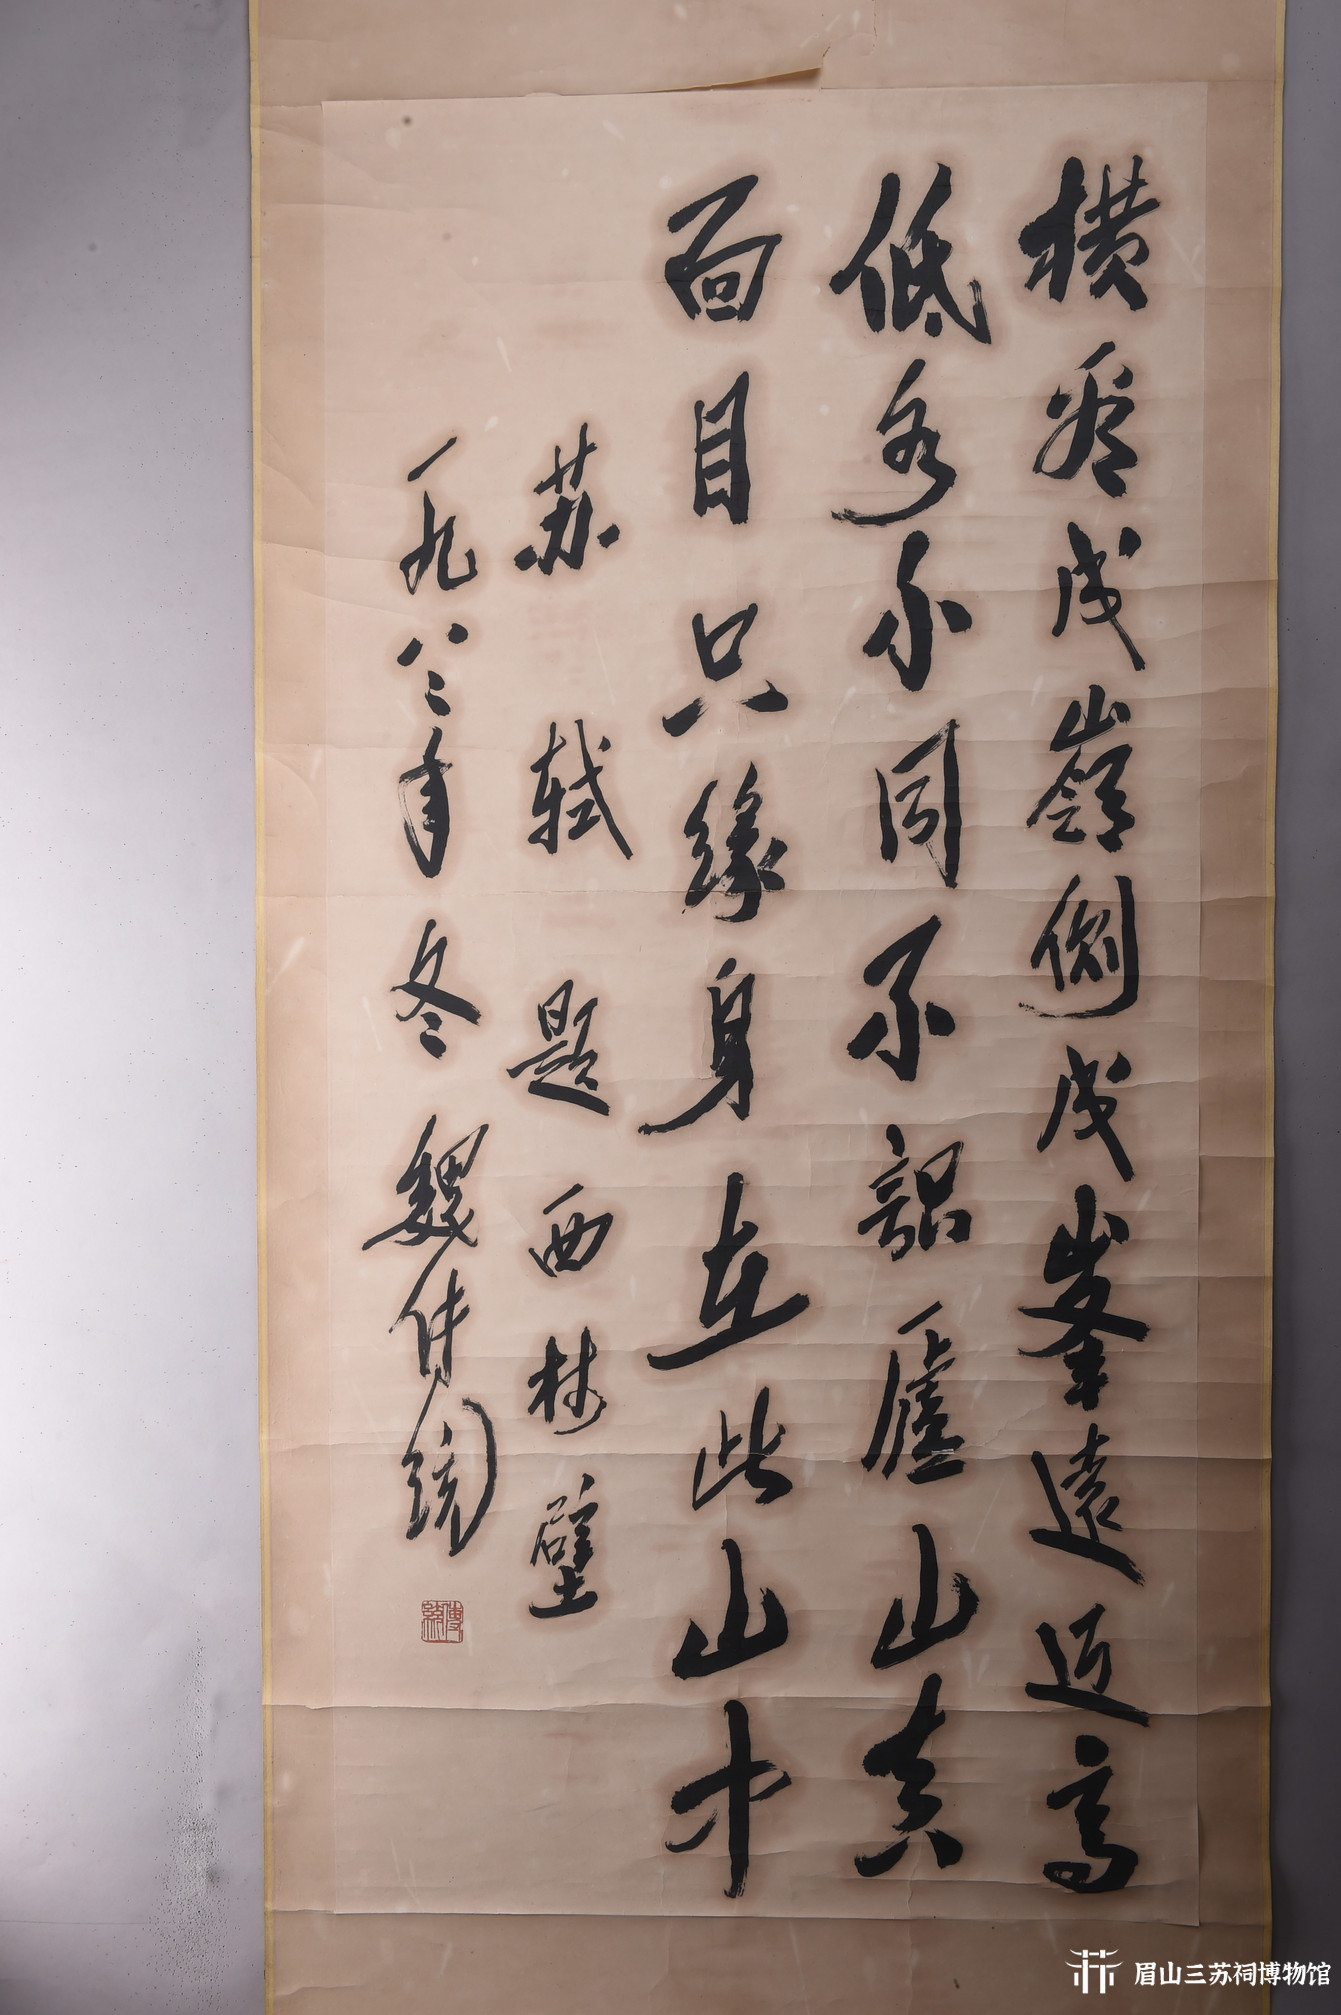 横看成嶺側成峯遠近高
低各不同不識廬山真
面目只緣身在此山中
苏轼题西林壁
一九八二年冬魏传统
傳統
眉山三苏祠博物馆